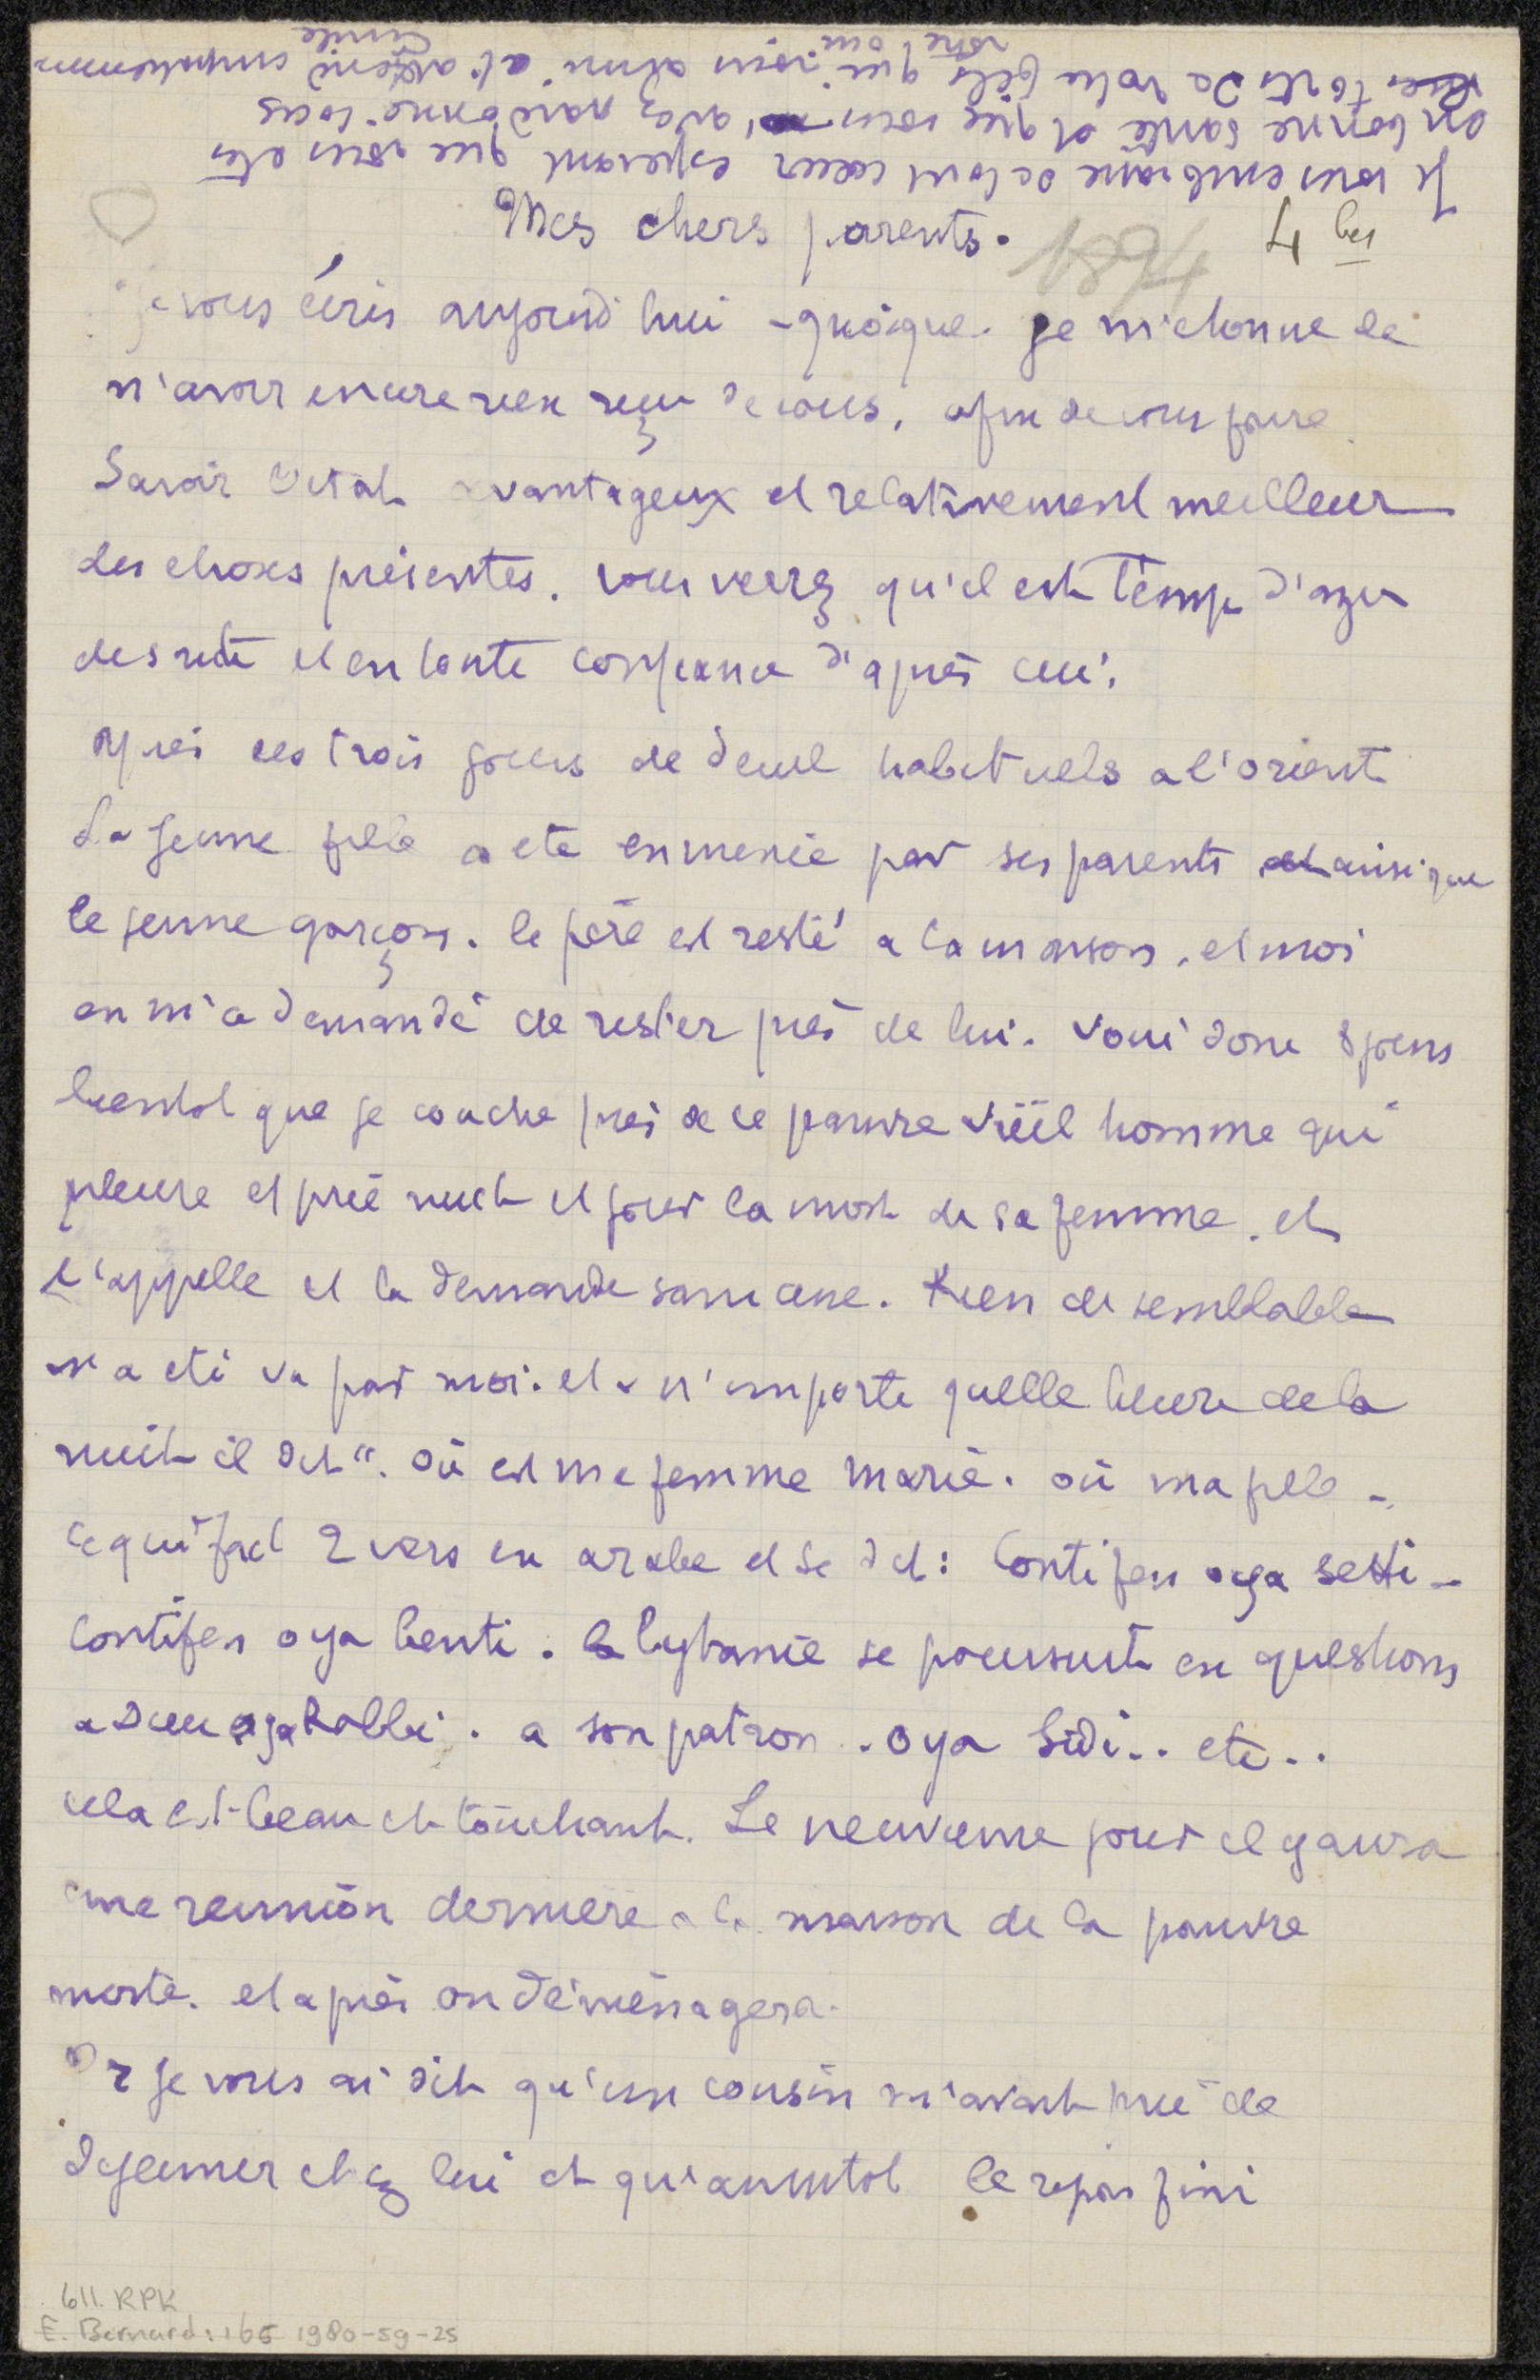 Je vous embrasse de tout cœur esperant que vous etes
en bonne santé et que vous avez pardonné tous
les torts de votre fils qui vous aime et attend impatiemment
votre oui
Emile
Mes chers parents.
1894
4 bis
je vous écris aujourd'hui - quoique je m'etonne de
n'avoir encore rien reçu de vous, afin de vous faire
Savoir l'etat avantageux et relativement meilleur
des choses présentes. vous verrez qu'il est temps d'agir
de suite et en toute confiance d'après ceci.
Après ces trois jours de deuil habituels a l'orient
La jeune fille a eté enmenée par ses parents ainsi que
le jeune garçon. le père est resté a la maison, et moi
on m'a demandé de rester près de lui. Voici donc 8 jours
bientot que je couche près de ce pauvre vieil homme qui
pleure et prie nuit et jour la mort de sa femme. et
l'appelle et la demande sans cesse. Rien de semblable
n'a eté vu par moi. et a n'importe quelle heure de la
nuit il dit ". où est ma femme Marie. où ma fille -
ce qui fait 2 vers en arabe et se dit: Contifen oya setti -
Contifen oya benti. la lytanie se poursuit en questions
a Dieu oya Rabbi. a son patron. oya Sidi.. etc..
cela est beau et touchant. Le neuvieme jour il y aura
une reunion derniere a la maison de la pauvre
morte. et après on déménagera.
Or je vous ai dit qu'un cousin m'avait prié de
dejeuner chez lui et qu'aussitot le repas fini
611. RPK
E. Bernard: 165 1980-59-25